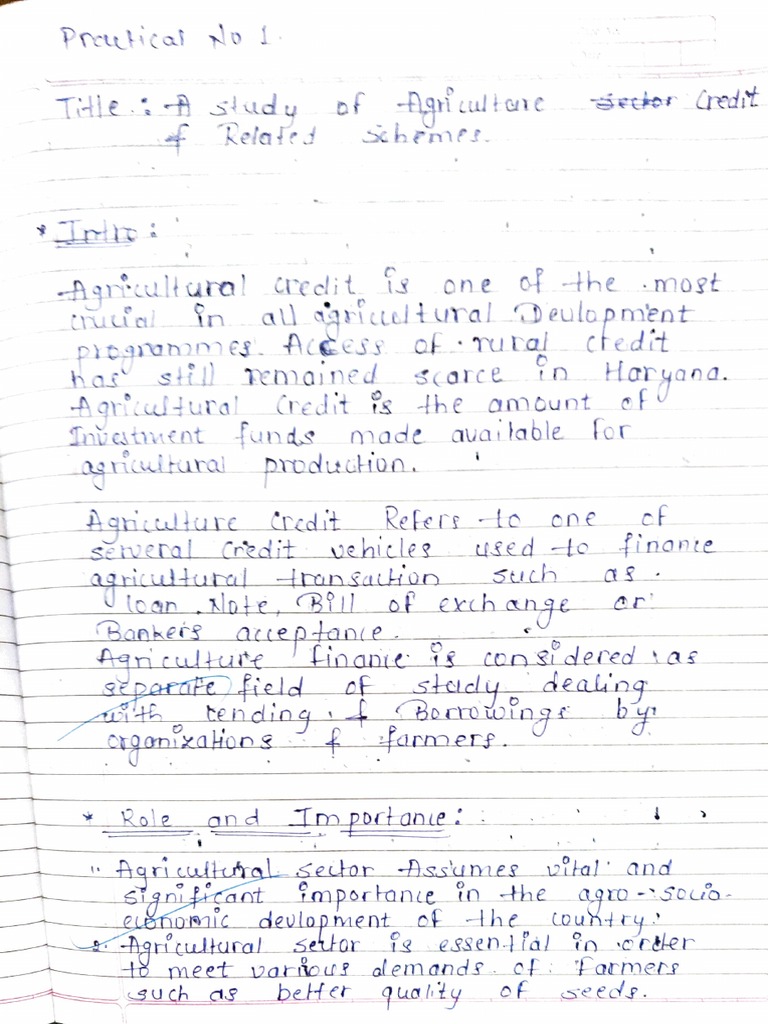 Practical No 1.
Title : A study of Agriculture sector Credit
& Related schemes.
* Intro :
Agricultural credit is one of the most
crucial in all agricultural Deulopment
programmes. Access of rural credit
has still remained scarce in Haryana.
Agricultural Credit is the amount of
Investment funds made available for
agricultural production.
Agriculture Credit Refers to one of
serveral credit vehicles used to finance
agricultural transaction such as
loan, Note, Bill of exchange or
Bankers acceptance.
Agriculture finance is considered as
separate field of study dealing
with lending & Borrowings by
organizations & farmers.
* Role and Importance :
1. Agricultural sector Assumes vital and
significant importance in the agro-socio-
economic devlopment of the country.
2. Agricultural sector is essential in order
to meet various demands of farmers
such as better quality of seeds.